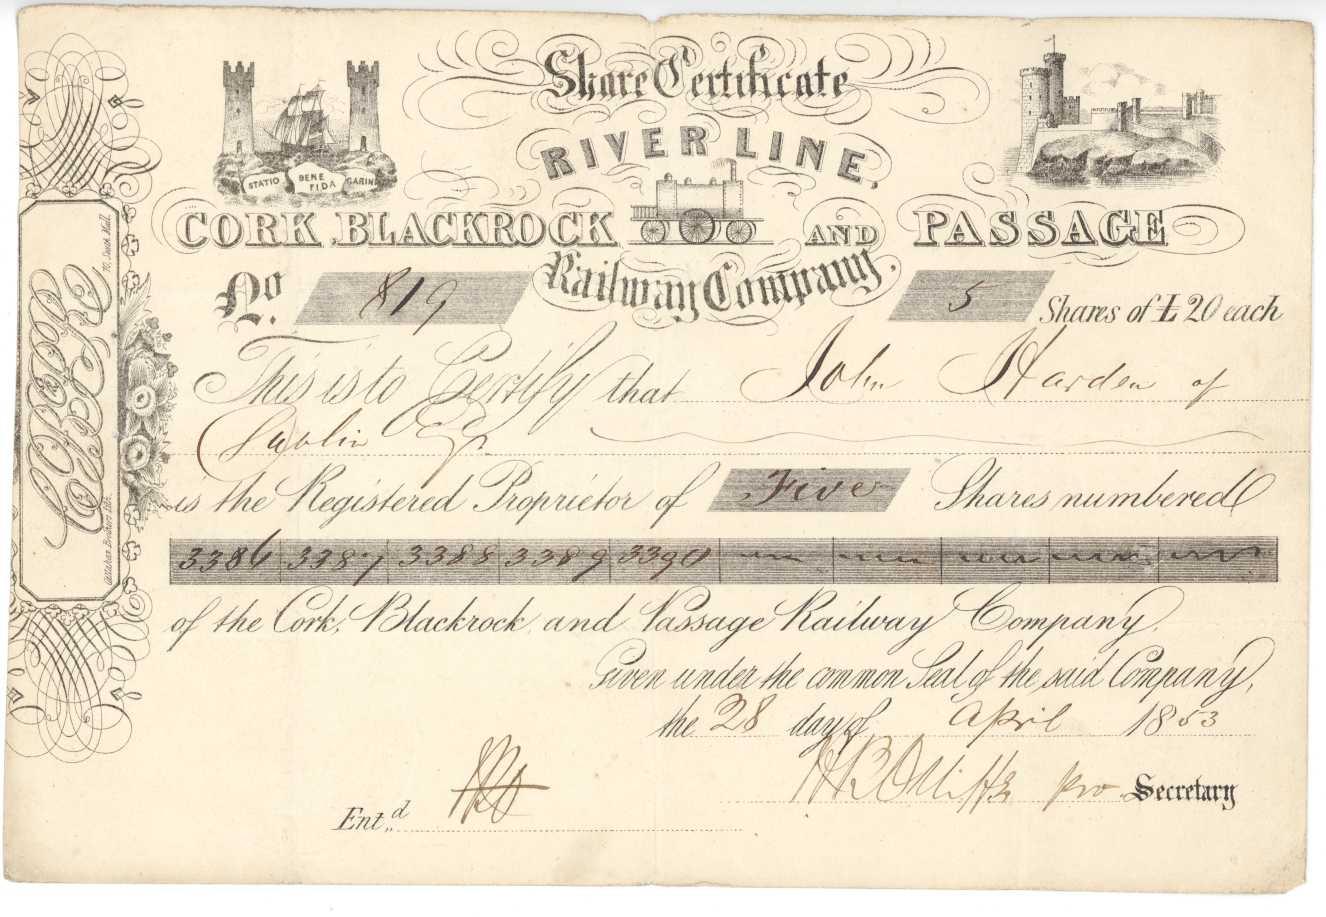 Share Certificate
RIVER LINE,
STATIO BENE FIDA CARINIS
CORK, BLACKROCK AND PASSAGE
Railway Company.
No. 819 5 Shares of £20 each
This is to Certify that John Harden of
Dublin Esqr.
is the Registered Proprietor of Five Shares numbered
3386 3387 3388 3389 3390
of the Cork, Blackrock, and Passage Railway Company.
Given under the common Seal of the said Company,
the 28 day of April 1853
pro Secretary
Ent.d
CB&PR
70, South Mall.